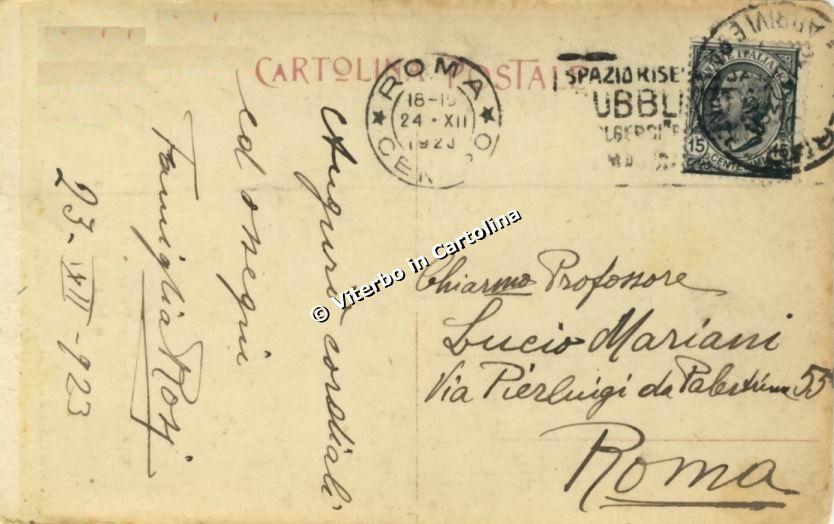 CARTOLINA POSTALE
ROMA
18-19
24·XII
1923
SPAZIO RISE
UBBLI
15
15
Auguri cordiali
ed ossequi
Famiglia Rosi
23-XII-923
© Viterbo in Cartolina
Chiarmo Professore
Lucio Mariani
Via Pierluigi da Palestrina 55
Roma